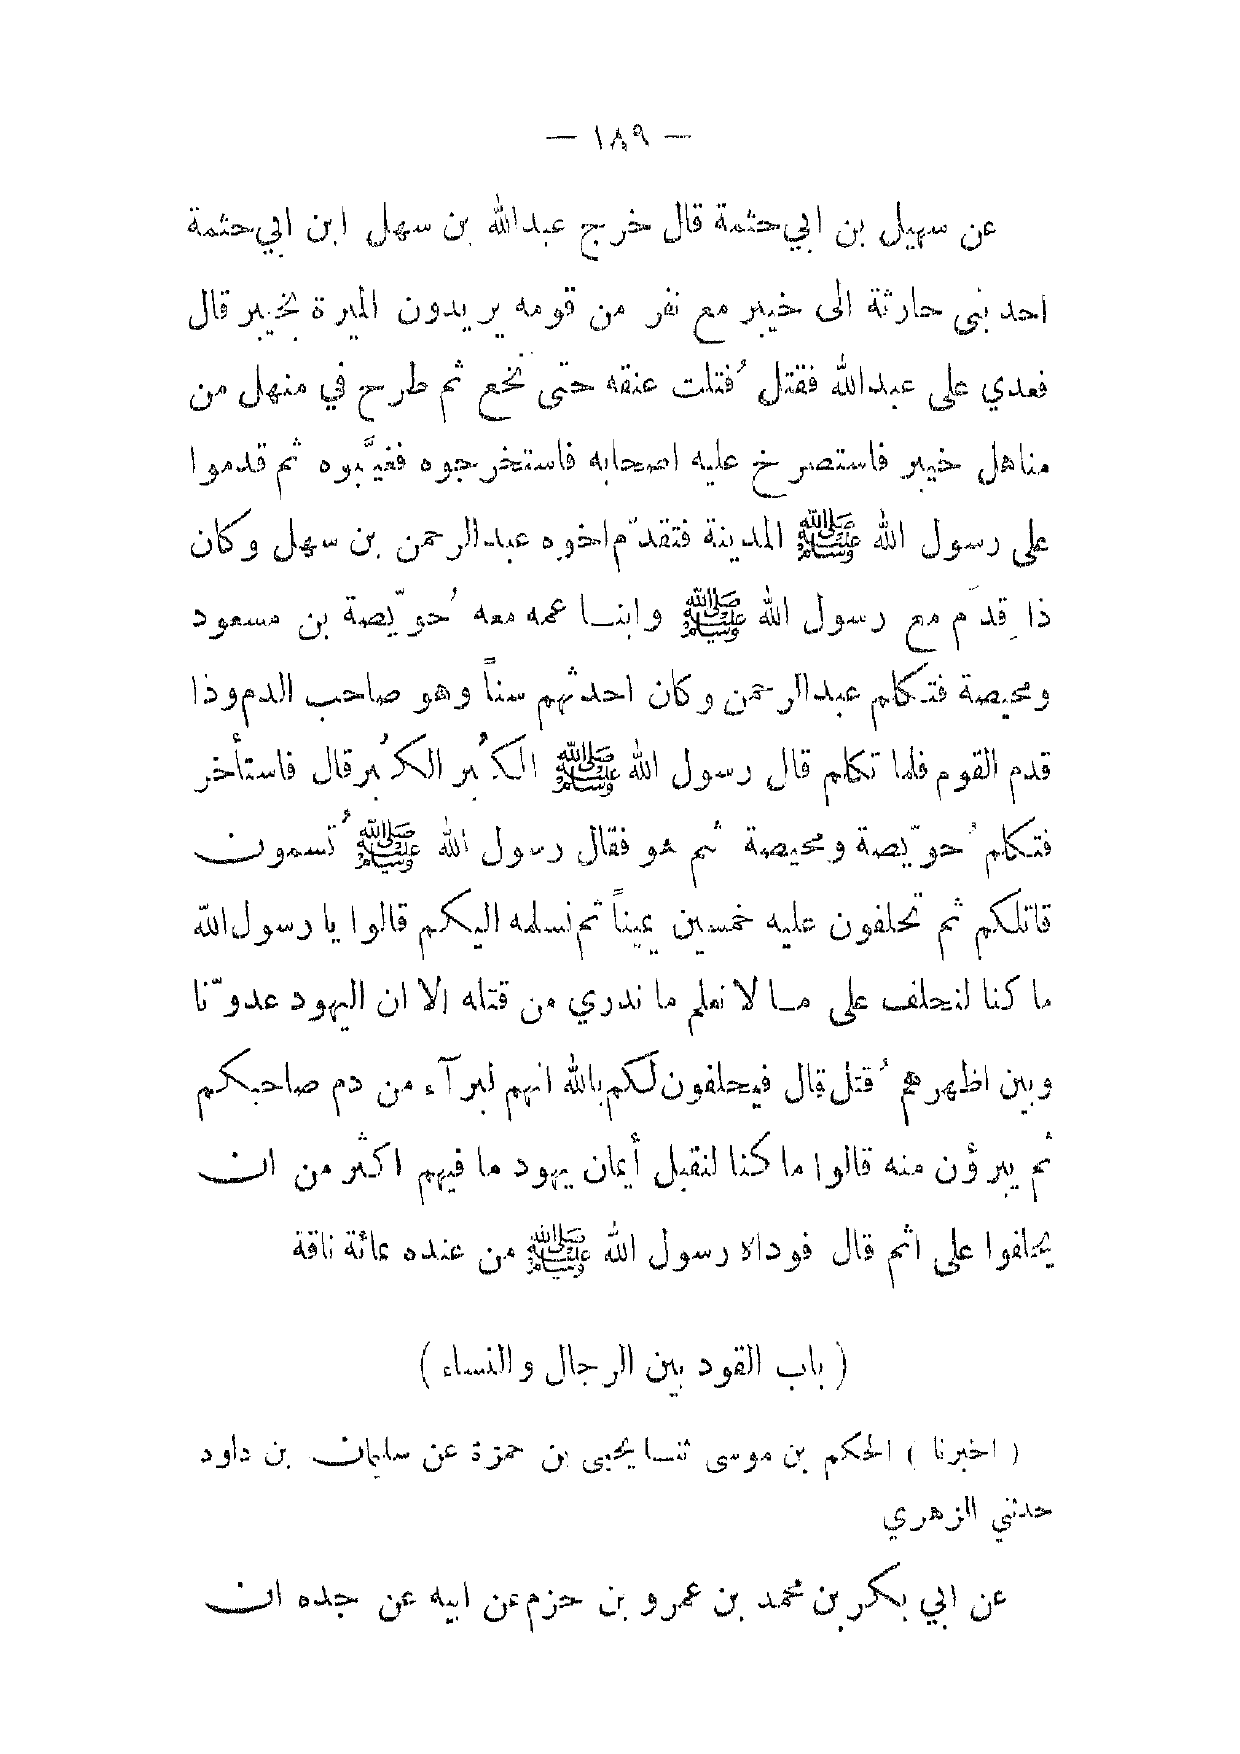 — ١٨٩ —
عن سهيل بن ابي حثمة قال خرج عبدالله بن سهل ابن ابي حثمة
احد بنى حارثة الى خيبر مع نفر من قومه يريدون الميرة بخيبر قال
فعدي على عبدالله فقتل فُتلت عنقه حتى نخع ثم طرح في منهل من
مناهل خيبر فاستصرخ عليه اصحابه فاستخرجوه فغيَّبوه ثم قدموا
على رسول الله ﷺ المدينة فتقدّم اخوه عبدالرحمن بن سهل وكان
ذا قِدَم مع رسول الله ﷺ وابنا عمه معه حُويّصة بن مسعود
ومحيصة فتكلم عبدالرحمن وكان احدثهم سناً وهو صاحب الدم وذا
قدم القوم فلما تكلم قال رسول الله ﷺ الكُبر الكُبر قال فاستأخر
فتكلم حُويّصة ومحيصة ثم هو فقال رسول الله ﷺ تُسمون
قاتلكم ثم تحلفون عليه خمسين يميناً ثم نسلمه اليكم قالوا يا رسول الله
ما كنا لنحلف على ما لا نعلم ما ندري من قتله الا ان اليهود عدوّنا
وبين اظهرهم قُتل قال فيحلفون لكم بالله انهم لبرآء من دم صاحبكم
ثم يبرؤن منه قالوا ما كنا لنقبل أيمان يهود ما فيهم اكثر من ان
يحلفوا على اثم قال فوداه رسول الله ﷺ من عنده بمائة ناقة
( باب القود بين الرجال والنساء )
( اخبرنا ) الحكم بن موسى ثنا يحيى بن حمزة عن سليمان بن داود
حدثني الزهري
عن ابي بكر بن محمد بن عمرو بن حزم عن ابيه عن جده ان